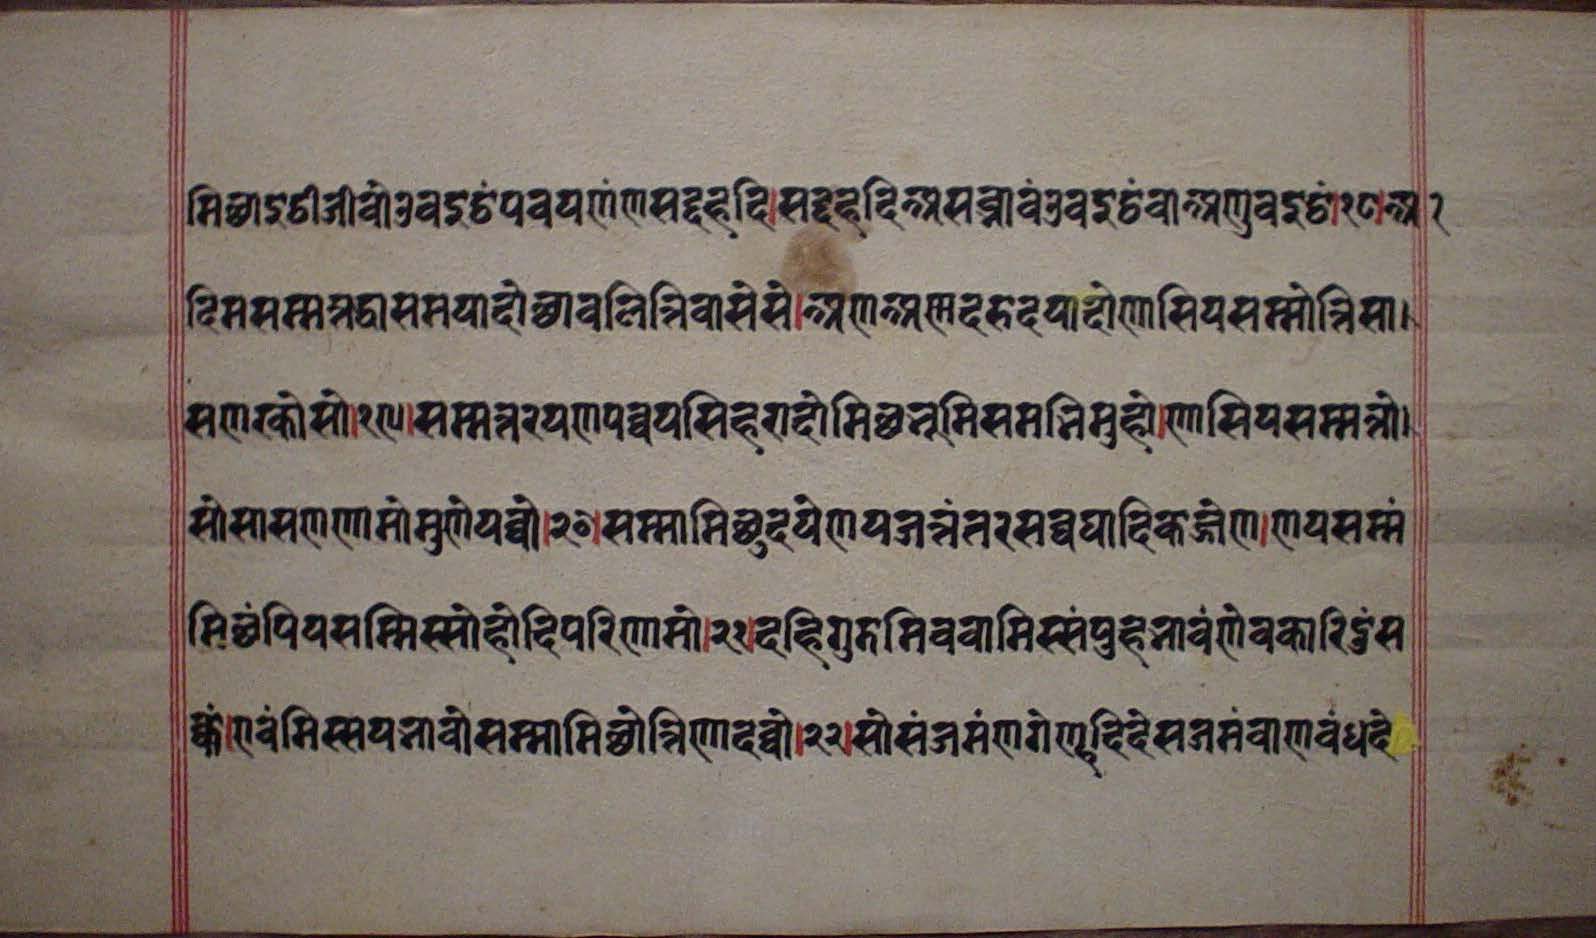 मिच्छाइट्ठीजीवोउवइट्ठंपवयणंणसद्दहदि।सद्दहदिअसब्भावंउवइट्ठंवाअणुवइट्ठं।१८।आ
दिमसम्मत्तद्धासमयादोछावलित्तिवासेसे।अणअण्णदरुदयादोणासियसम्मोत्तिसा।
सणरकोसो।१९।सम्मत्तरयणपव्वयसिहरादोमिच्छभूमिसमभिमुहो।णासियसम्मत्तो।
सोसासणणामोमुणेयव्वो।२०।सम्मामिच्छुदयेणयजत्तंतरसव्वघादिकज्जेण।णयसम्मं
मिच्छंपियसम्मिस्सोहोदिपरिणामो।२१।दहिगुडमिववामिस्संपुहभावंणेवकारिदुंस
क्कं।एवंमिस्सयभावोसम्मामिच्छोत्तिणादव्वो।२२।सोसंजमंणगेण्हदिदेसजमंवाणवंधदे